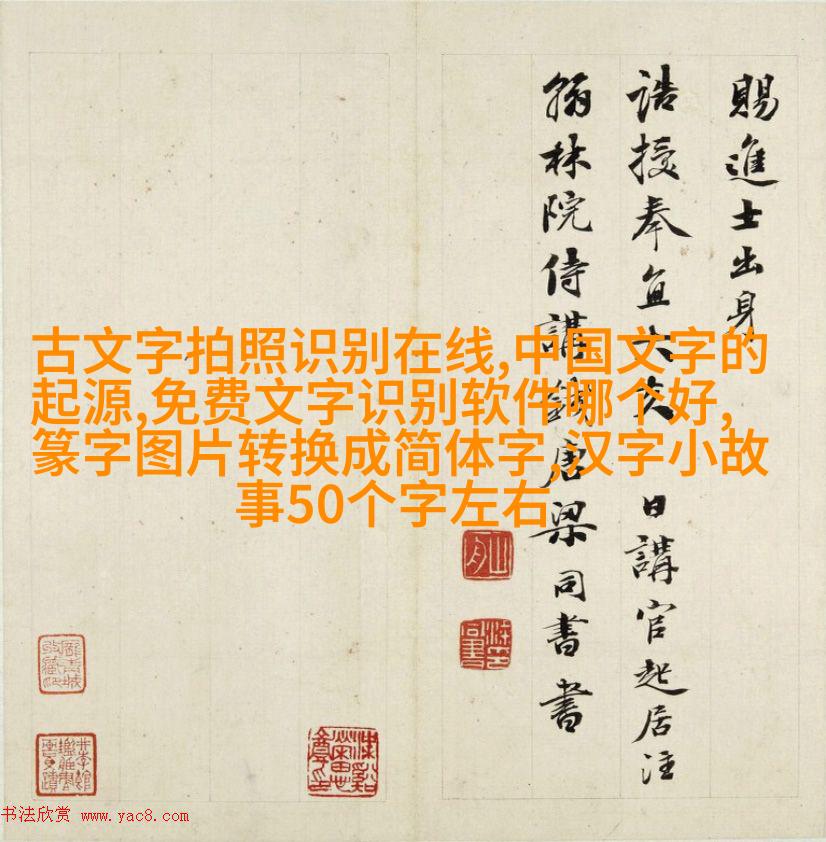 賜進士出身
誥授奉直大夫 日講官起居注
翰林院侍講錢唐梁同書書
古文字拍照识别在线,中国文字的
起源,免费文字识别软件哪个好,
篆字图片转换成简体字,汉字小故
事50个字左右
书法欣赏 www.yac8.com